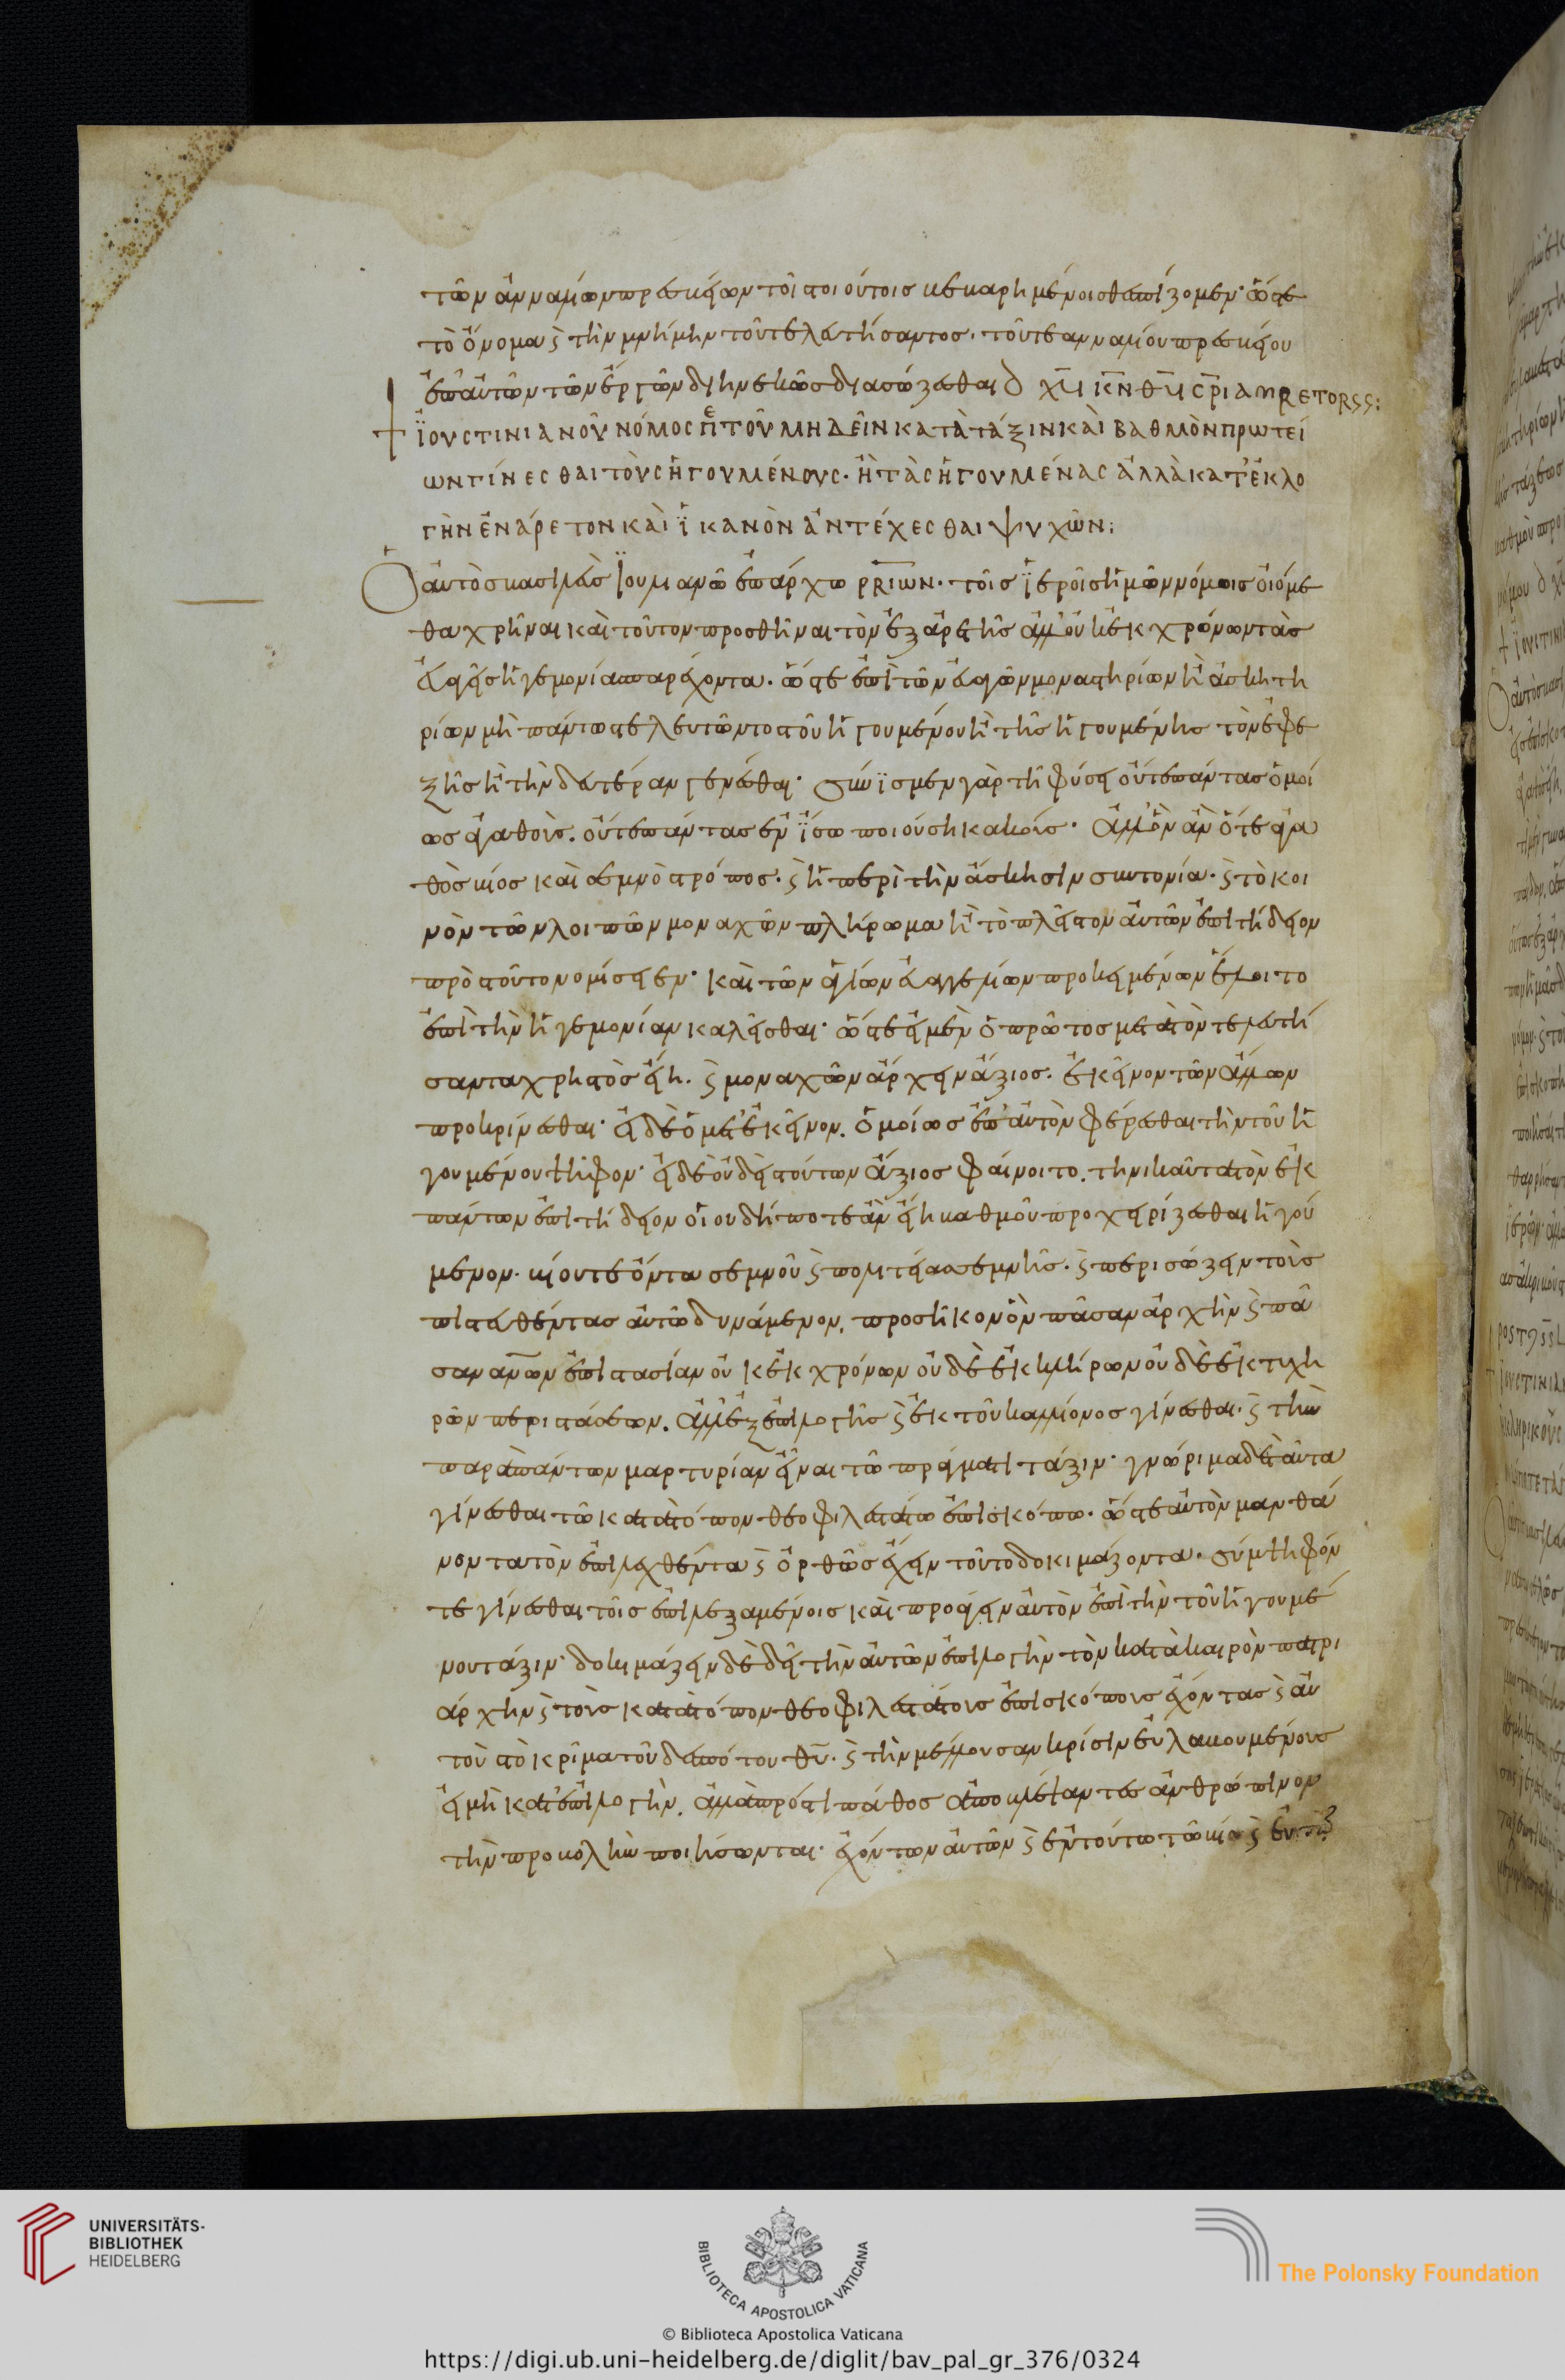 τῶν ἀνναλίων πρεσβείων τοῖς τοιούτοις βεβαρημένοις θεσπίζομεν· ὥστε
τὸ ὄνομα καὶ τὴν μνήμην τοῦ τελευτήσαντος. τοῦτε ανναλίου πρεσβείου
ἐπ' αὐτῶν τῶν ἔργων διηνεκῶς διασώζεσθαι
ἸΟΥΣΤΙΝΙΑΝΟΥ ΝΟΜΟΣ ΠΕ ΤΟΥ ΜΗ ΔΕΙΝ ΚΑΤΑ ΤΑΞΙΝ ΚΑΙ ΒΑΘΜΟΝ ΠΡΩΤΕΙ
ΩΝ ΓΙΝΕΣΘΑΙ ΤΟΥΣ ἩΓΟΥΜΕΝΟΥΣ· Ἢ ΤΑΣ ἩΓΟΥΜΕΝΑΣ ἈΛΛΑ ΚΑΤ' ἘΚΛΟ
ΓΗΝ ἘΝΑΡΕΤΟΝ ΚΑΙ ἹΚΑΝΟΝ ἈΝΤΕΧΕΣΘΑΙ ΨΥΧΩΝ;
Ὁ αὐτὸς βασιλεὺς Ἰουλιανῶ ἐπάρχω PRΙΩΝ· τοῖς ἱεροῖς ἡμῶν νόμοις οἰόμε
θα χρῆναι καὶ τοῦτον προσθῆναι τὸν ἐξ ἀρετῆς ἀλλ' οὐκ ἐκ χρόνων τὰς
εὐαγεῖς ἡγεμονίας παρέχοντα. ὥστε ἐπὶ τῶν εὐαγῶν μοναστηρίων ἢ ἀσκητη
ρίων μὴ πάντως τελευτῶντος τοῦ ἡγουμένου ἢ τῆς ἡγουμένης τὸν ἐφε
ξῆς ἢ τὴν δευτέραν γενέσθαι· σύνϊσμεν γὰρ τῆ φύσει οὔτε πάντας ὁμοί
ως ἀγαθοὺς. οὔτε πάντας ἐν ἴσω ποιούση κακούς. ἀλλ' ὃν ἂν ὅτε ἀγα
θὸς βίος καὶ σεμνὸς τρόπος. καὶ ἡ περὶ τὴν ἄσκησιν συντονία. καὶ τὸ κοι
νὸν τῶν λοιπῶν μοναχῶν πλήρωμα ἢ τὸ πλεῖστον αὐτῶν ἐπιτήδειον
πρὸς τοῦτο νομίσειεν· καὶ τῶν ἁγίων εὐαγγελίων προκειμένων ἕλοιτο
ἐπὶ τὴν ἡγεμονίαν καλεῖσθαι· ὥστε εἰ μὲν ὁ πρῶτος μετὰ τὸν τελευτή
σαντα χρηστὸς εἴη. καὶ μοναχῶν ἄρχειν ἄξιος. ἐκεῖνον τῶν ἄλλων
προκρίνεσθαι· εἰ δὲ ὁ μετ' ἐκεῖνον. ὁμοίως ἐπ' αὐτὸν φέρεσθαι τὴν τοῦ ἡ
γουμένου ψῆφον· εἰ δὲ οὐδεὶς τούτων ἄξιος φαίνοιτο. τηνικαῦτα τὸν ἐκ
πάντων ἐπιτήδειον οἵου δήποτε ἂν εἴη βαθμοῦ προχειρίζεσθαι ἡγού
μενον. βίου τε ὄντα σεμνοῦ καὶ πολιτείας σεμνῆς. καὶ περισώζειν τοὺς
πιστευθέντας αὐτῶ δυνάμενον. προσῆκον ὂν πᾶσαν ἀρχὴν καὶ πᾶ
σαν ανων ἐπιστασίαν οὐκ ἐκ χρόνων οὐδὲ ἐκ κλήρων οὐδὲ ἐκ τυχη
ρῶν περιστάσεων. ἀλλ' ἐξ ἐπιλογῆς καὶ ἐκ τοῦ καλλίονος γίνεσθαι. καὶ τὴν
παρὰ πάντων μαρτυρίαν εἶναι τῶ πράγματι τάξιν· γνώριμα δὲ ταῦτα
γίνεσθαι τῶ κατὰ τόπον θεοφιλεστάτω ἐπισκόπω. ὥστε αὐτὸν μανθά
νοντα τὸν ἐπιλεχθέντα καὶ ὀρθῶς ἔχειν τοῦτο δοκιμάζοντα. σύμψηφόν
τε γίνεσθαι τοῖς ἐπιλεξαμένοις καὶ προάγειν αὐτὸν ἐπὶ τὴν τοῦ ἡγουμέ
νου τάξιν· δοκιμάζειν δὲ δεῖ τὴν αὐτῶν ἐπιλογὴν τὸν κατὰ καιρὸν πατρι
άρχην καὶ τοὺς κατὰ τόπον θεοφιλεστάτους ἐπισκόπους ἔχοντας καὶ αὐ
τοὺς τὸ κρῖμα τοῦ δεσπότου θυ. καὶ τὴν μέλλουσαν κρίσιν εὐλαβουμένους
εἰ μὴ κατ' ἐπιλογὴν. ἀλλὰ πρός τι πάθος ἀποκλίναντες ἀνθρώπινον
τὴν προβολὴν ποιήσωνται· ἐχόντων αὐτῶν καὶ ἐν τούτω τῶ βίω καὶ ἐν τῶ
UNIVERSITÄTS-
BIBLIOTHEK
HEIDELBERG
BIBLIOTECA APOSTOLICA VATICANA
The Polonsky Foundation
© Biblioteca Apostolica Vaticana
https://digi.ub.uni-heidelberg.de/diglit/bav_pal_gr_376/0324